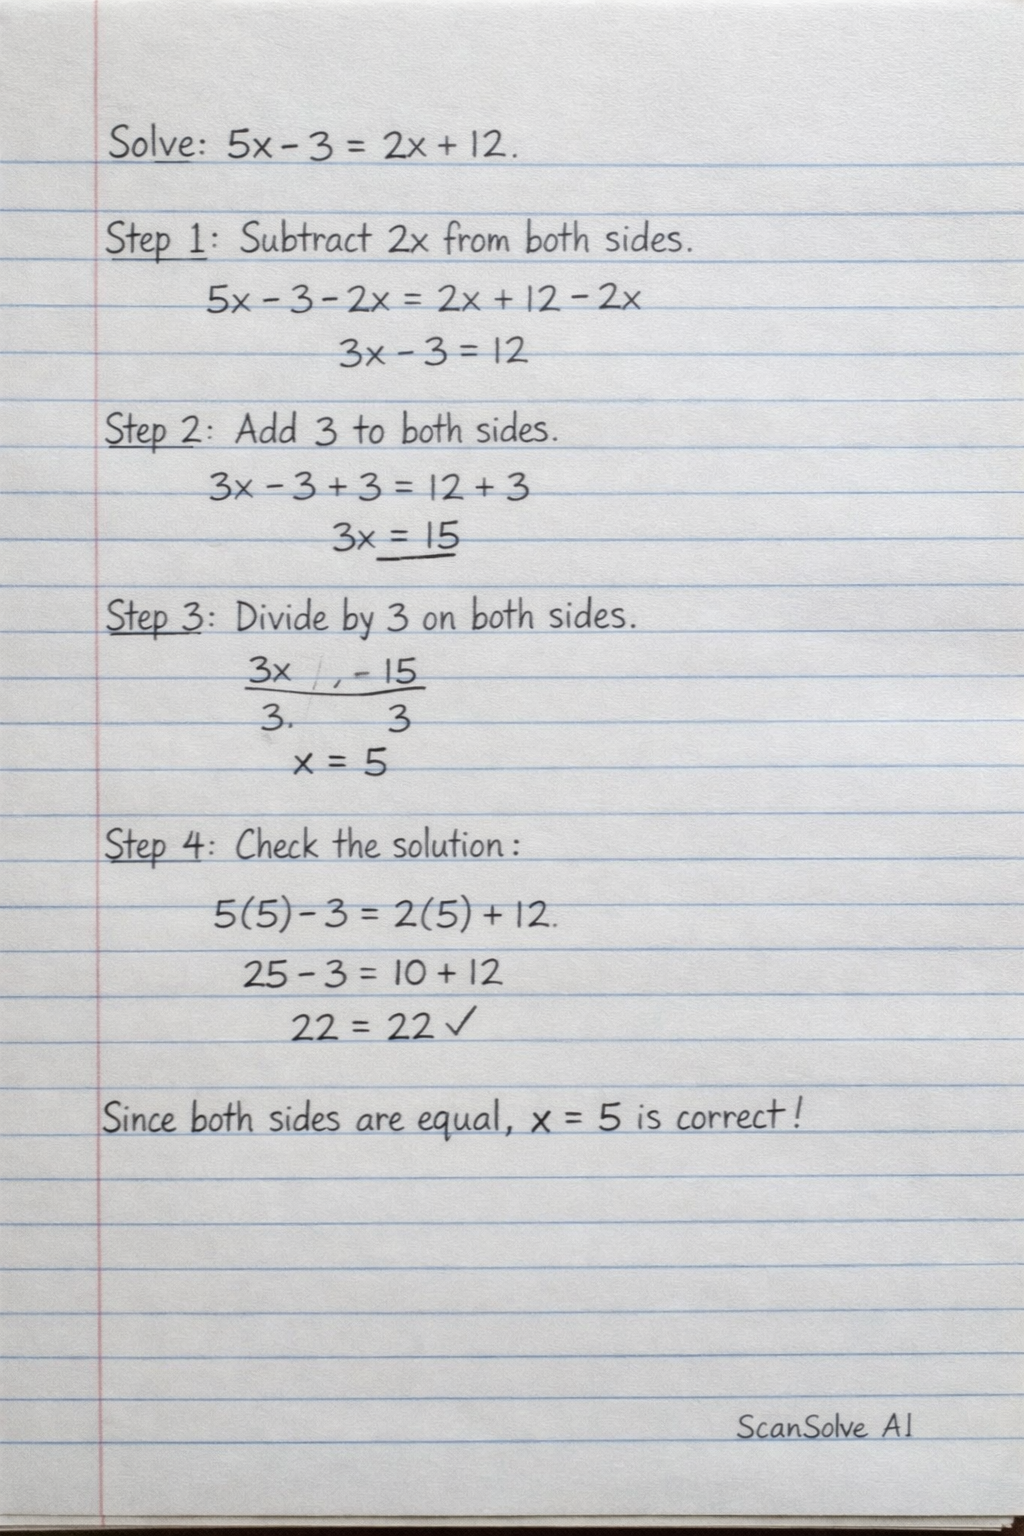 Solve: 5x - 3 = 2x + 12.
Step 1: Subtract 2x from both sides.
5x - 3 - 2x = 2x + 12 - 2x
3x - 3 = 12
Step 2: Add 3 to both sides.
3x - 3 + 3 = 12 + 3
3x = 15
Step 3: Divide by 3 on both sides.
3x , - 15
3. 3
x = 5
Step 4: Check the solution:
5(5) - 3 = 2(5) + 12.
25 - 3 = 10 + 12
22 = 22 ✓
Since both sides are equal, x = 5 is correct!
ScanSolve AI